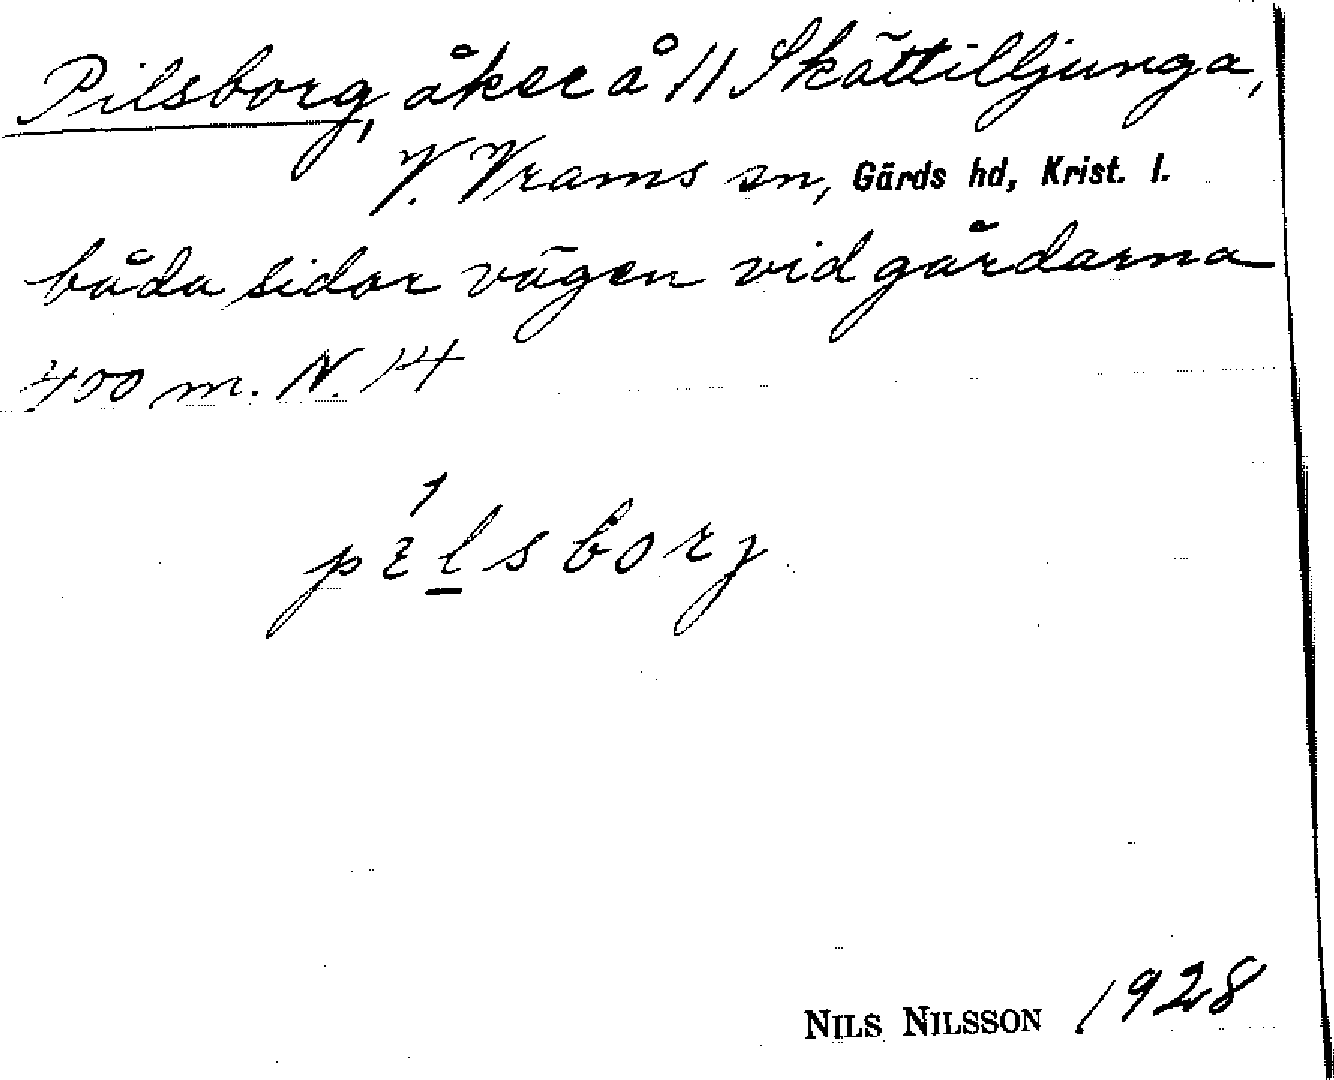 Pilsborg, åker å 11 Skättilljunga,
V. Vrams sn, Gärds hd, Krist. l.
båda sidor vägen vid gårdarna
400 m. N. 14
pilsborj
NILS NILSSON 1928